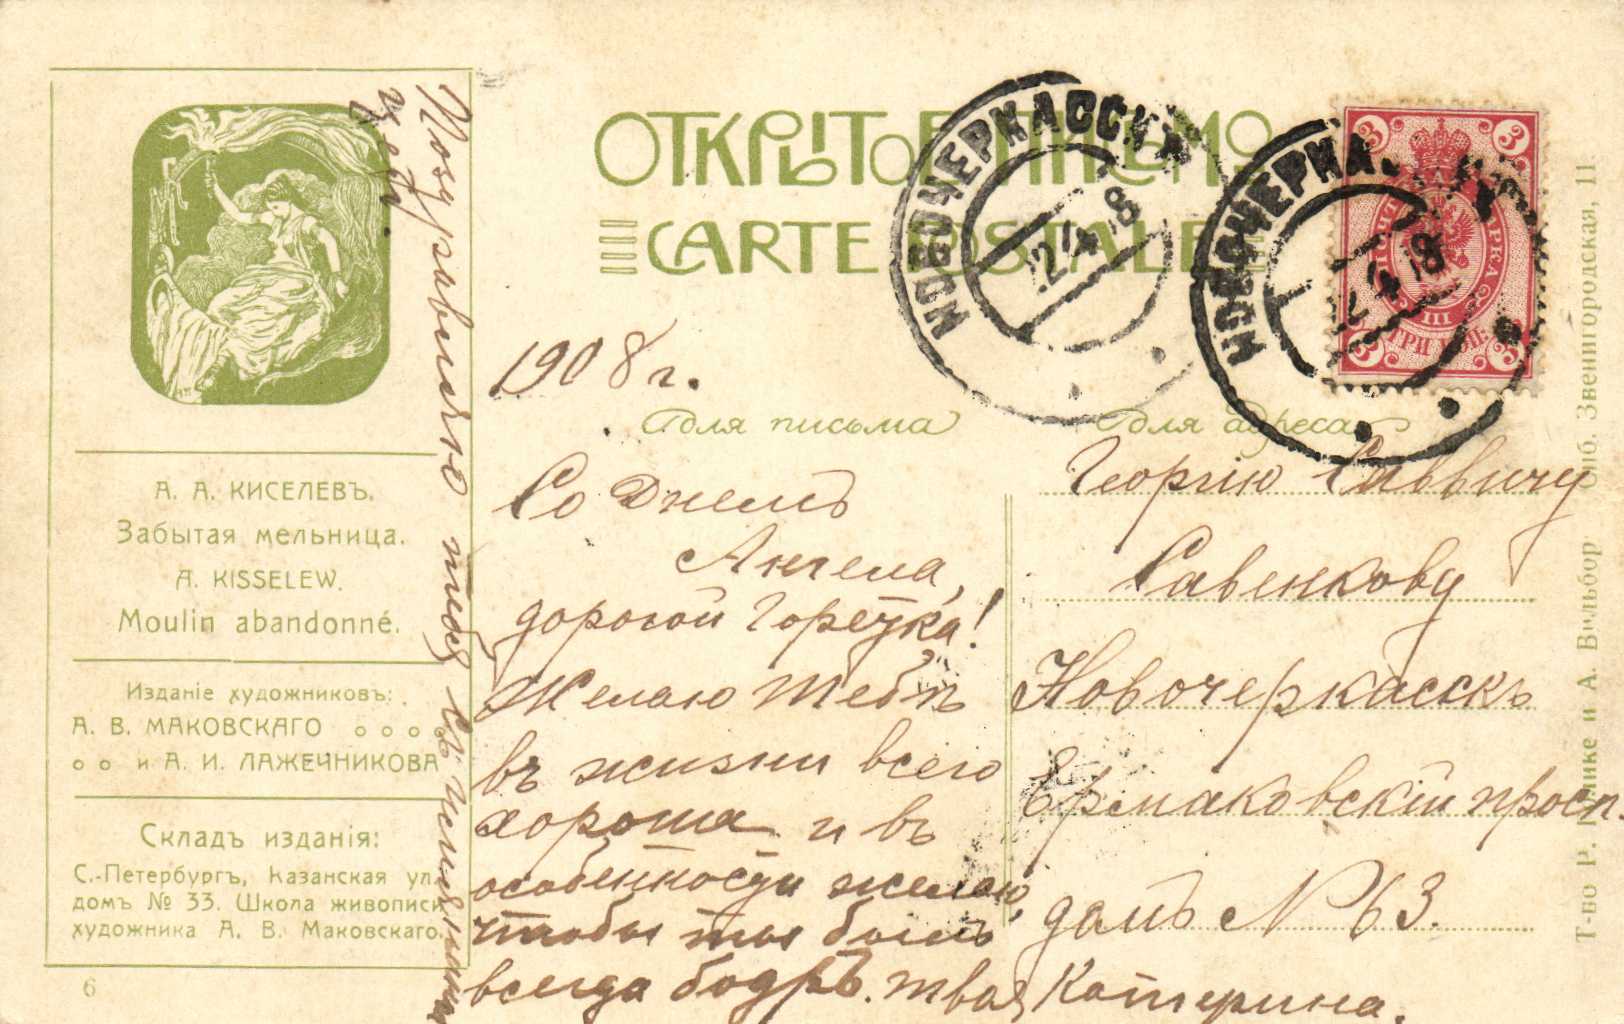 ОТКРЫТОЕ ПИСЬМО
CARTE POSTALE
НОВОЧЕРКАССКЪ
22 4 08
НОВОЧЕРКАССКЪ
22 4 08
3 3
МАРКА
III
ТРИ КОП.
3 3
А. А. КИСЕЛЕВЪ.
Забытая мельница.
A. KISSELEW.
Moulin abandonné.
Изданіе художниковъ:
А. В. МАКОВСКАГО
и А. И. ЛАЖЕЧНИКОВА
Складъ изданія:
С.-Петербургъ, Казанская ул.
домъ № 33. Школа живописи
художника А. В. Маковскаго.
6
Поздравляю тебя съ
1908 г.
Для письма
Со Днемъ
Ангела,
дорогой Горечка!
Желаю Тебѣ
въ жизни всего
хороша и въ
особенности желаю,
чтобы ты былъ
всегда бодръ. твоя Катерина.
Для адреса
Георгію Саввичу
Савенкову
Новочеркасскъ
Ермаковскій просп.
домъ № 63.
Т-во Р. Голике и А. Вильборг Спб. Звенигородская, 11